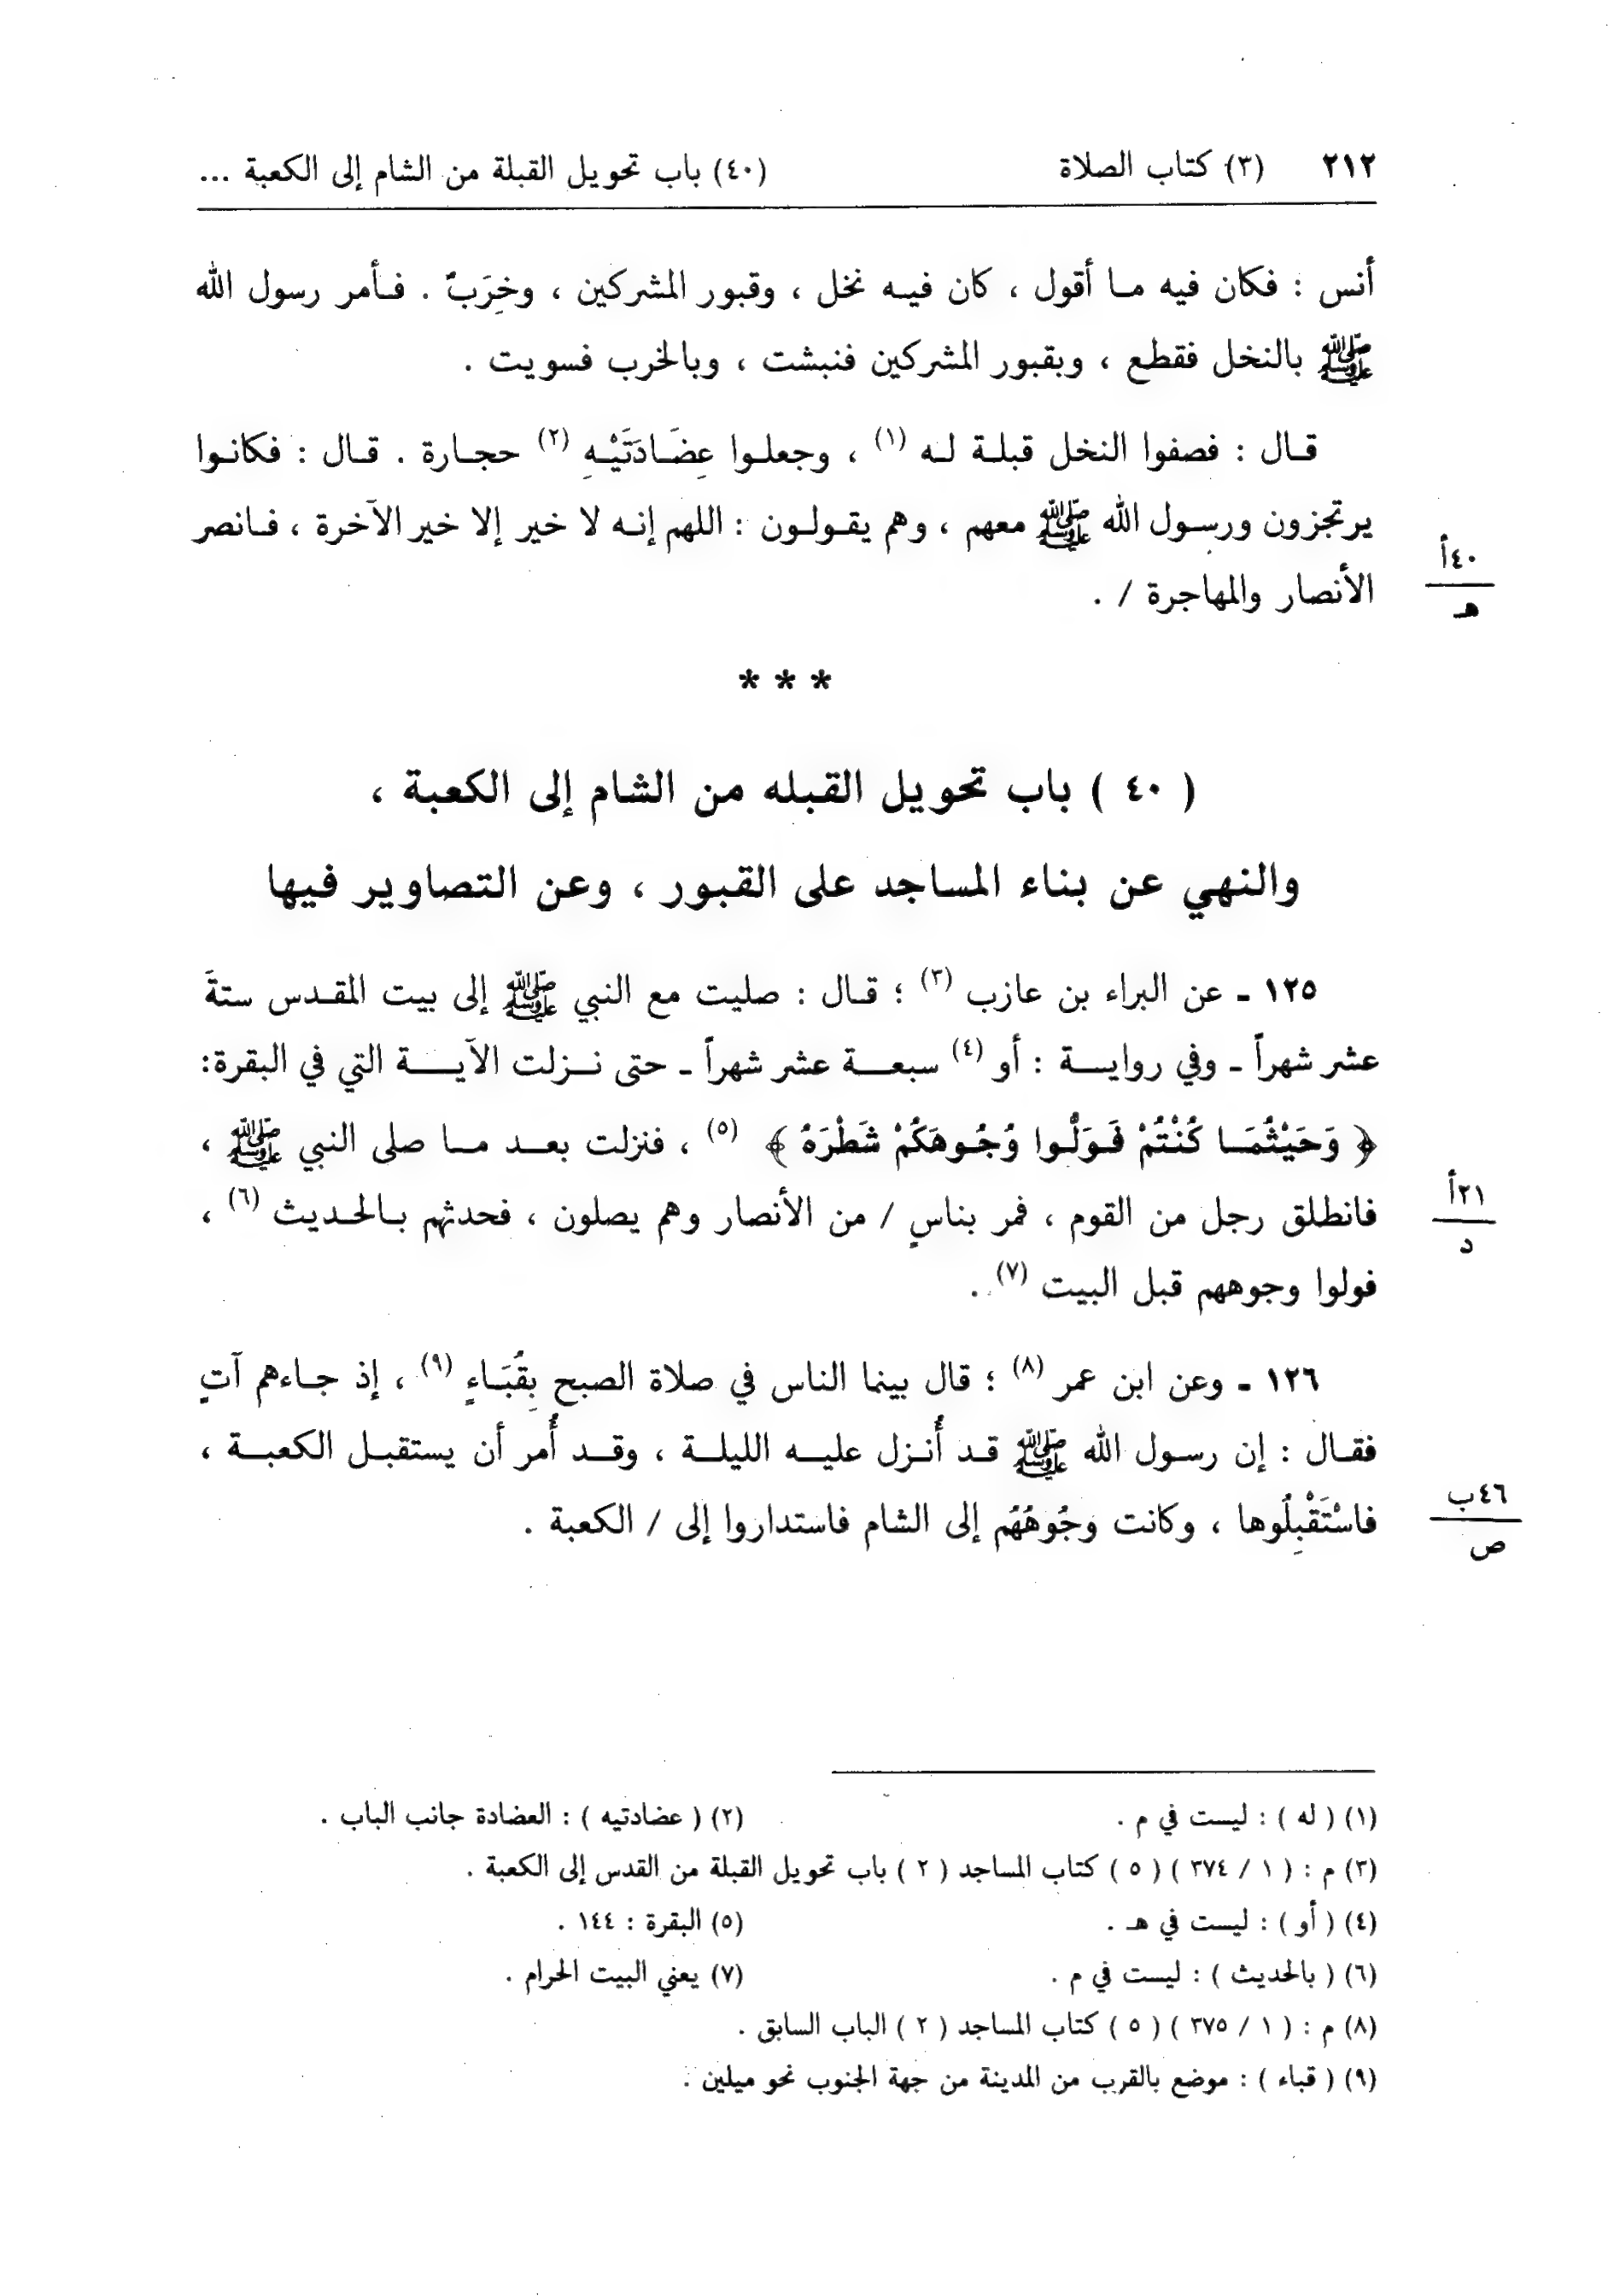 ٢١٢ (٣) كتاب الصلاة (٤٠) باب تحويل القبلة من الشام إلى الكعبة ...
أنس : فكان فيه ما أقول ، كان فيه نخل ، وقبور المشركين ، وخِرَبٌ . فأمر رسول الله
ﷺ بالنخل فقطع ، وبقبور المشركين فنبشت ، وبالخرب فسويت .
قال : فصفوا النخل قبلة له (١) ، وجعلوا عِضَادَتَيْهِ (٢) حجارة . قال : فكانوا
يرتجزون ورسول الله ﷺ معهم ، وهم يقولون : اللهم إنه لا خير إلا خير الآخرة ، فانصر
٤٠أ
هـ
الأنصار والمهاجرة / .
* * *
( ٤٠ ) باب تحويل القبله من الشام إلى الكعبة ،
والنهي عن بناء المساجد على القبور ، وعن التصاوير فيها
١٢٥ ـ عن البراء بن عازب (٣) ؛ قال : صليت مع النبي ﷺ إلى بيت المقدس ستةَ
عشر شهراً ـ وفي رواية : أو (٤) سبعة عشر شهراً ـ حتى نزلت الآية التي في البقرة:
﴿ وَحَيْثُمَا كُنْتُمْ فَوَلُّوا وُجُوهَكُمْ شَطْرَهُ ﴾ (٥) ، فنزلت بعد ما صلى النبي ﷺ ،
٢١أ
د
فانطلق رجل من القوم ، فمر بناسٍ / من الأنصار وهم يصلون ، فحدثهم بالحديث (٦) ،
فولوا وجوههم قبل البيت (٧) .
١٢٦ ـ وعن ابن عمر (٨) ؛ قال بينما الناس في صلاة الصبح بِقُبَاءٍ (٩) ، إذ جاءهم آتٍ
فقال : إن رسول الله ﷺ قد أُنزل عليه الليلة ، وقد أُمر أن يستقبل الكعبة ،
٤٦ب
ص
فاسْتَقْبِلُوها ، وكانت وجُوهُهُم إلى الشام فاستداروا إلى / الكعبة .
(١) ( له ) : ليست في م . (٢) ( عضادتيه ) : العضادة جانب الباب .
(٣) م : ( ١ / ٣٧٤ ) ( ٥ ) كتاب المساجد ( ٢ ) باب تحويل القبلة من القدس إلى الكعبة .
(٤) ( أو ) : ليست في هـ . (٥) البقرة : ١٤٤ .
(٦) ( بالحديث ) : ليست في م . (٧) يعني البيت الحرام .
(٨) م : ( ١ / ٣٧٥ ) ( ٥ ) كتاب المساجد ( ٢ ) الباب السابق .
(٩) ( قباء ) : موضع بالقرب من المدينة من جهة الجنوب نحو ميلين .